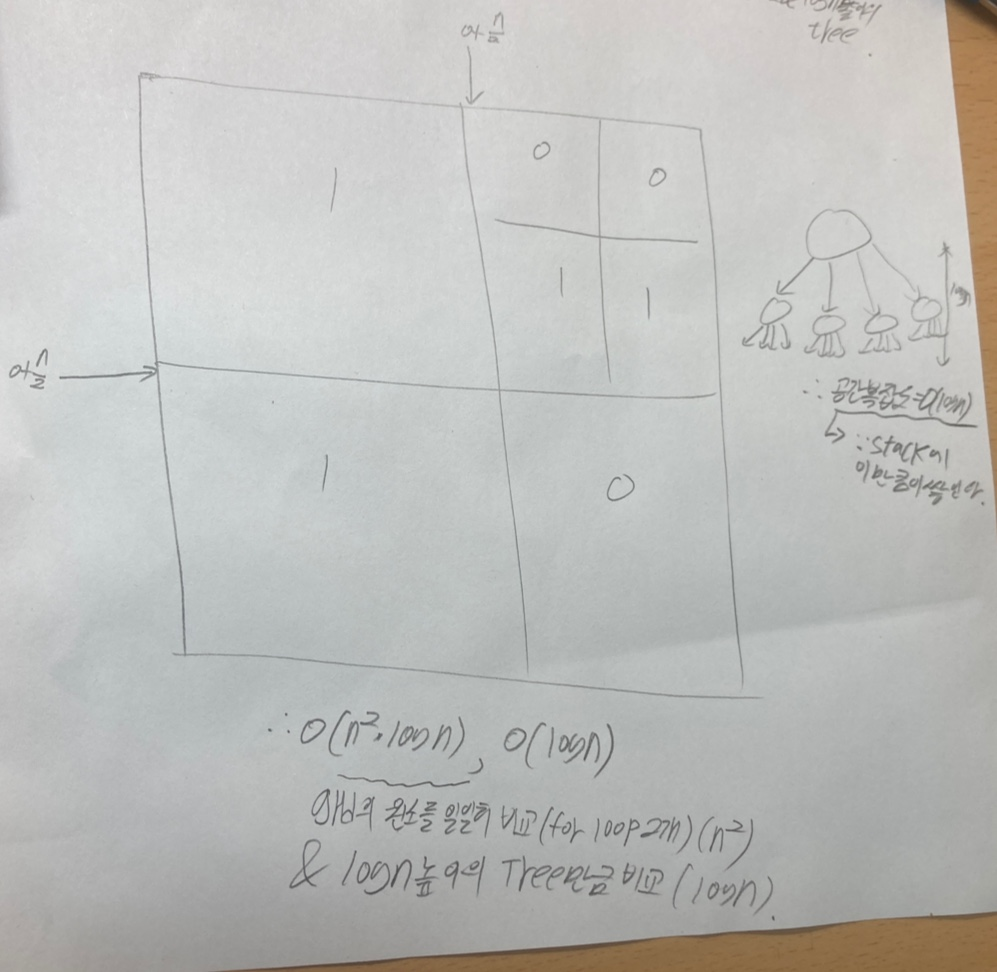 tree.
0+n/2
0
0
1
1
1
0+n/2
logn
∴ 공간복잡도=O(logn)
↳ ∵ stack에
이만큼이 쌓인다.
1
0
∴ O(n²·logn), O(logn)
원소를 일일히 비교(for loop 2개)(n²)
& logn높이의 Tree만큼 비교(logn).